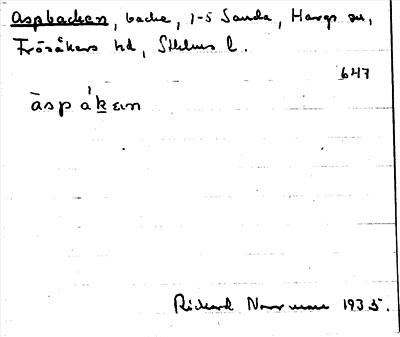 Aspbacken, backe, 1-5 Sanda, Hargs sn,
Frösåkers hd, Sthlms l.
647
àspákεn
Rickard Norrman 1935.